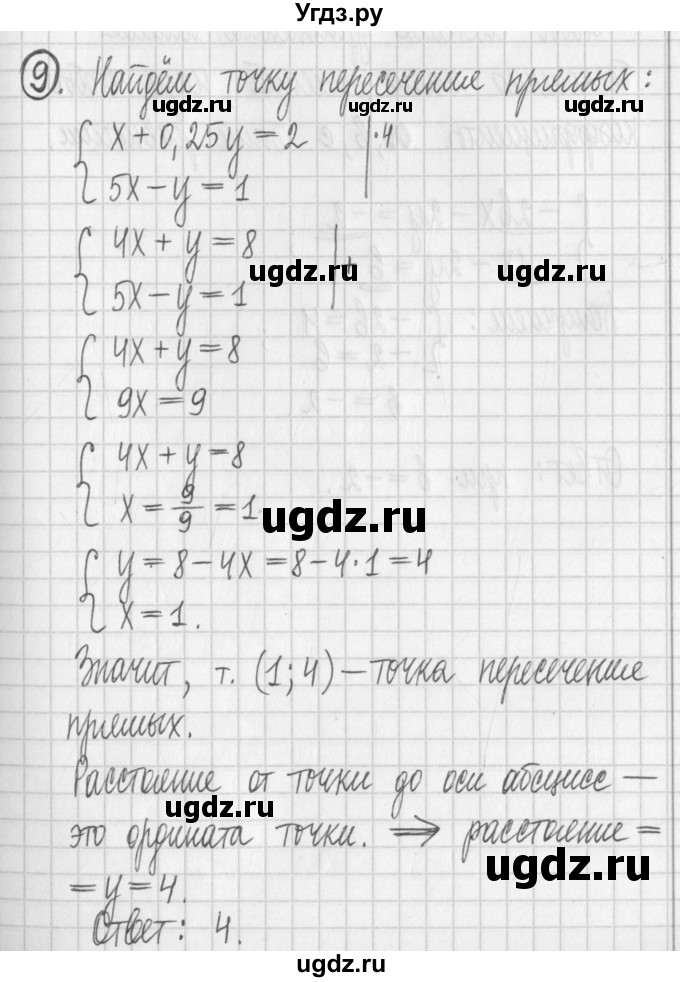 Угдз.ру
9. Найдём точку пересечение прямых:
ugdz.ru ugdz.ru
{ x + 0,25y = 2 | ·4
5x - y = 1
{ 4x + y = 8 | +
ugdz.ru ugdz.ru
5x - y = 1
{ 4x + y = 8
9x = 9
{ 4x + y = 8
x = 9/9 = 1.
ugdz.ru
{ y = 8 - 4x = 8 - 4·1 = 4
x = 1.
Значит, т. (1; 4) — точка пересечение
прямых.
Расстояние от точки до оси абсцисс —
ugdz.ru
это ордината точки. ⟹ расстояние =
ugdz.ru
= y = 4.
Ответ: 4.
ugdz.ru
ugdz.ru